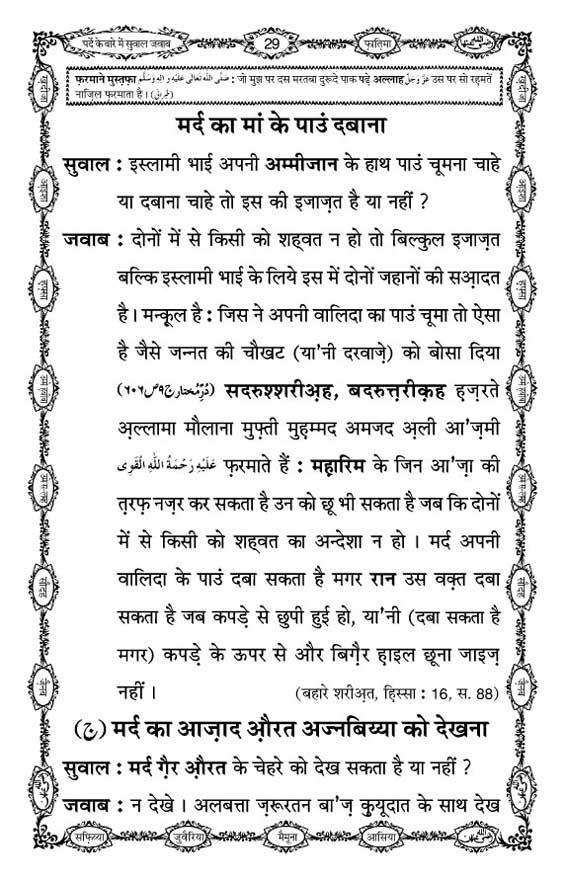 पर्दे के बारे में सुवाल जवाब
29
फ़ातिमा
फ़रमाने मुस्तफ़ा صَلَّى اللهُ تَعَالَى عَلَيْهِ وَاٰلِهٖ وَسَلَّم : जो मुझ पर दस मरतबा दुरूदे पाक पढ़े अल्लाह عَزَّوَجَلَّ उस पर सो रहमतें
नाज़िल फ़रमाता है । (طبرانی)
मर्द का मां के पाउं दबाना
सुवाल : इस्लामी भाई अपनी अम्मीजान के हाथ पाउं चूमना चाहे
या दबाना चाहे तो इस की इजाज़त है या नहीं ?
जवाब : दोनों में से किसी को शह्वत न हो तो बिल्कुल इजाज़त
बल्कि इस्लामी भाई के लिये इस में दोनों जहानों की सआ़दत
है । मन्कूल है : जिस ने अपनी वालिदा का पाउं चूमा तो ऐसा
है जैसे जन्नत की चौखट (या'नी दरवाज़े) को बोसा दिया
(دُرِّمُختار ج٩ ص٦٠٦) सदरुश्शरीअ़ह, बदरुत्तरीक़ह हज़रते
अ़ल्लामा मौलाना मुफ़्ती मुह़म्मद अमजद अ़ली आ'ज़मी
عَلَيْهِ رَحْمَةُ اللهِ الْقَوِى फ़रमाते हैं : मह़ारिम के जिन आ'ज़ा की
त़रफ़ नज़र कर सकता है उन को छू भी सकता है जब कि दोनों
में से किसी को शह्वत का अन्देशा न हो । मर्द अपनी
वालिदा के पाउं दबा सकता है मगर रान उस वक़्त दबा
सकता है जब कपड़े से छुपी हुई हो, या'नी (दबा सकता है
मगर) कपड़े के ऊपर से और बिग़ैर ह़ाइल छूना जाइज़
नहीं ।
(बहारे शरीअ़त, हि़स्सा : 16, स. 88)
(ج) मर्द का आज़ाद औ़रत अज्नबिय्या को देखना
सुवाल : मर्द ग़ैर औ़रत के चेहरे को देख सकता है या नहीं ?
जवाब : न देखे । अलबत्ता ज़रूरतन बा'ज़ क़ुयूदात के साथ देख
सफ़िय्या
जुवैरिया
मैमूना
आसिया